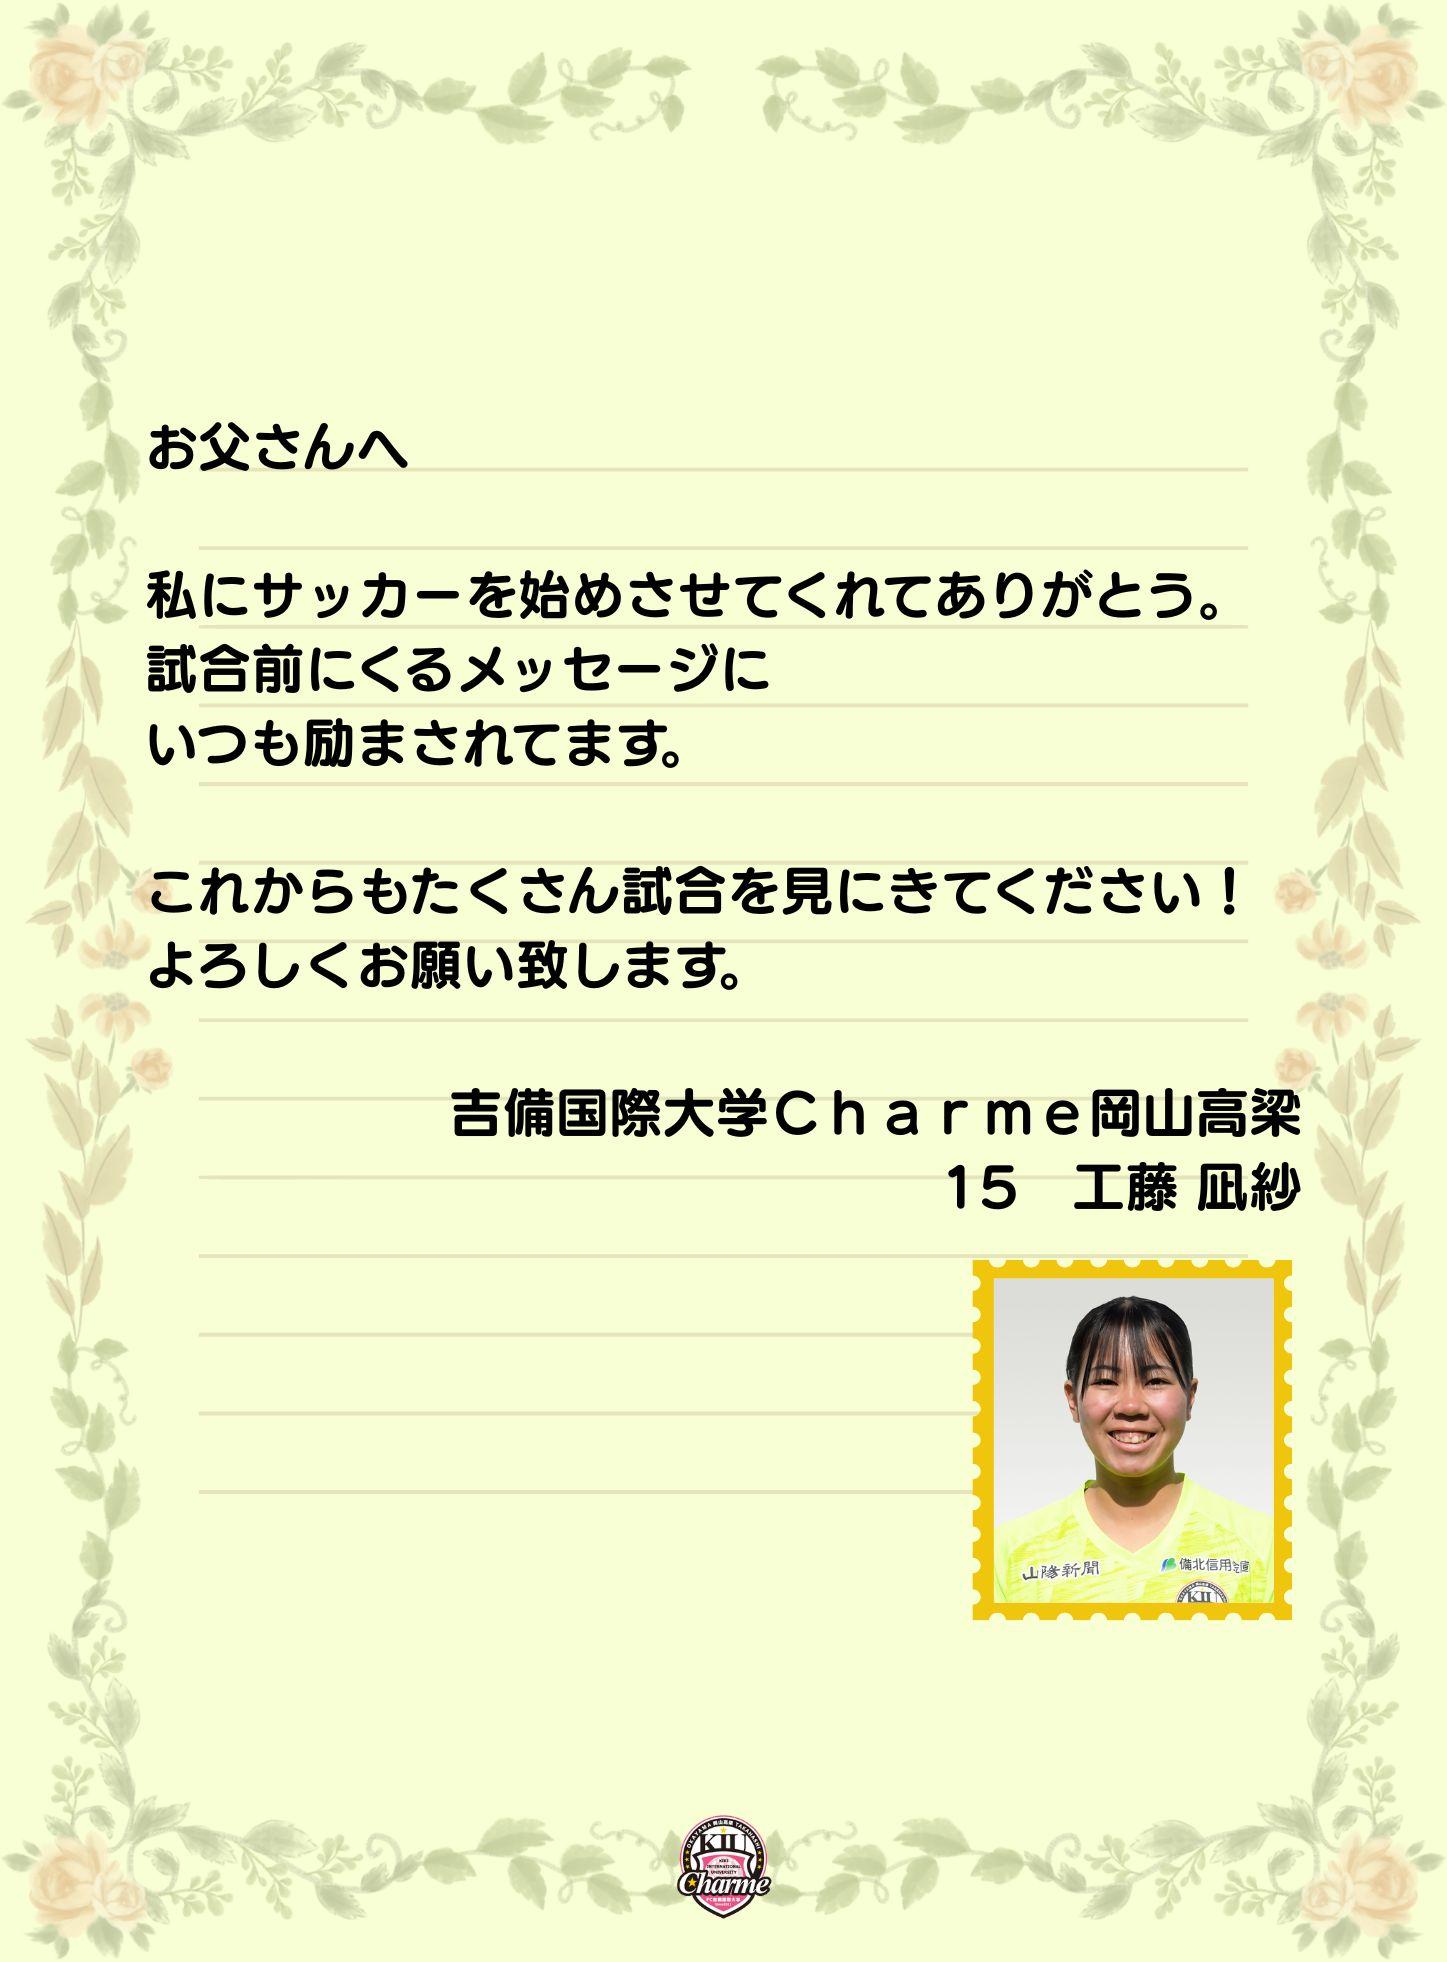 お父さんへ
私にサッカーを始めさせてくれてありがとう。
試合前にくるメッセージに
いつも励まされてます。
これからもたくさん試合を見にきてください！
よろしくお願い致します。
吉備国際大学Ｃｈａｒｍｅ岡山高梁
15　工藤 凪紗
山陽新聞
備北信用金庫
KIU
OKAYAMA 岡山高梁 TAKAHASHI
KIU
KIBI
INTERNATIONAL
UNIVERSITY
Charme
FC吉備国際大学